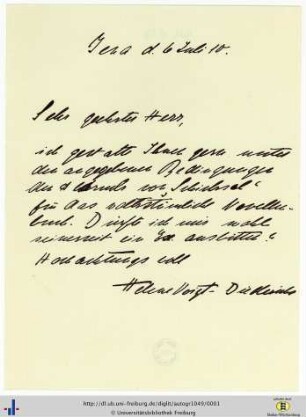 Jena d. 6 Juli 10.
Sehr geehrter Herr,
ich gestatte Ihnen gern unter
den angegebenen Bedingungen
den
für das volkstümliche Novellen-
buch. Dürfte ich mir wohl
seinerzeit ein Ex. ausbitten?
Hochachtungsvoll
Helene Voigt-Diederichs
http://dl.ub.uni-freiburg.de/diglit/autogr1049/0001
© Universitätsbibliothek Freiburg